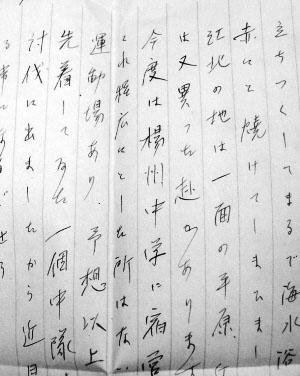 立ちつくしてまるで海水浴
赤いと焼けてしまひまし
江北の地は一面の平原
は又異った赴きがあります
今度は楊州中学に宿営
これ程広いとした所はない
運動場あり、予想以上
先着して居た一個中隊
討伐に出ましたから近日